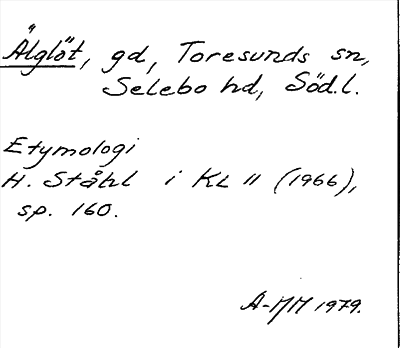 Älglöt, gd, Toresunds sn,
Selebo hd, Söd.l.
Etymologi
H. Ståhl i KL 11 (1966),
sp. 160.
A-MM 1979.